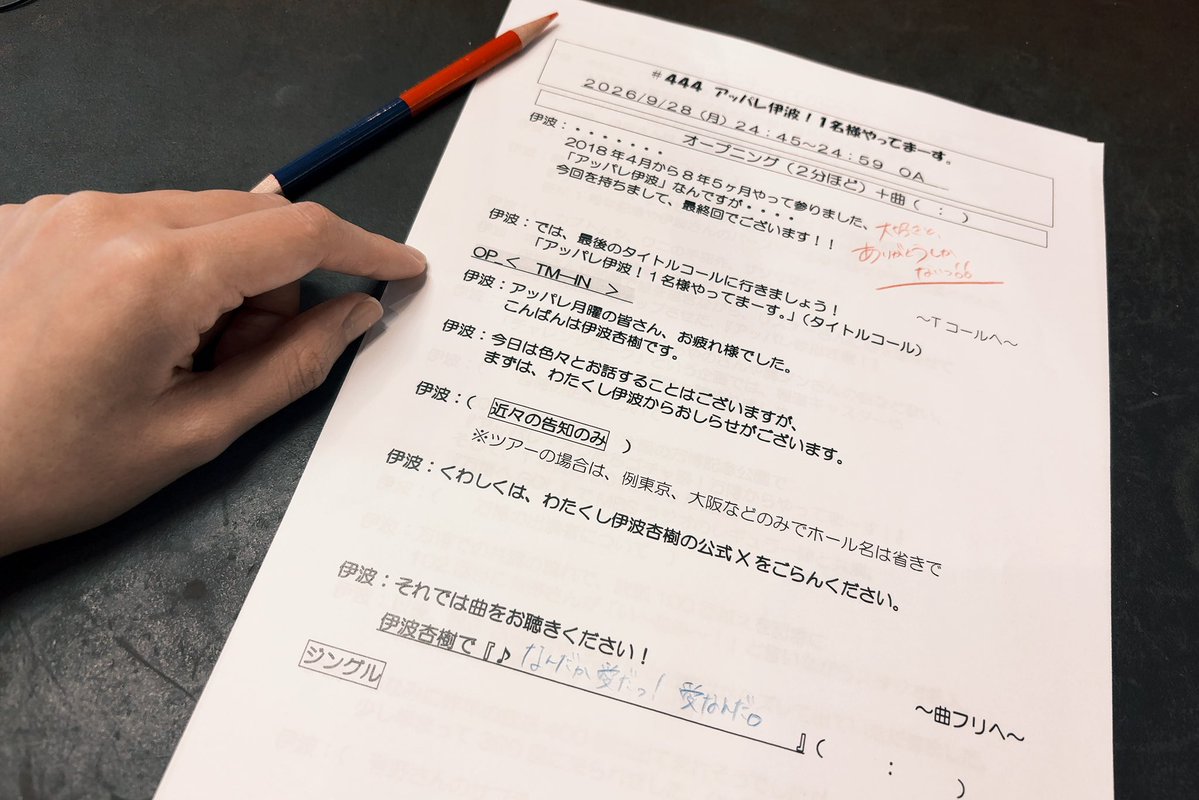 #444 アッパレ伊波!1名様やってまーす。
2026/9/28(月)24:45～24:59 OA
オープニング(2分ほど)+曲( : )
伊波:・・・・・・
2018年4月から8年5ヶ月やって参りました、
「アッパレ伊波」なんですが・・・・
今回を持ちまして、最終回でございます!!
大好きと、
ありがとうしか
ないっ!!
伊波:では、最後のタイトルコールに行きましょう!
「アッパレ伊波!1名様やってまーす。」(タイトルコール)
～Tコールへ～
OP < TM-IN >
伊波:アッパレ月曜の皆さん、お疲れ様でした。
こんばんは伊波杏樹です。
伊波:今日は色々とお話することはございますが、
まずは、わたくし伊波からおしらせがございます。
伊波:( 近々の告知のみ )
※ツアーの場合は、例東京、大阪などのみでホール名は省きで
伊波:くわしくは、わたくし伊波杏樹の公式Xをごらんください。
伊波:それでは曲をお聴きください!
伊波杏樹で『♪ なんだか愛だっ! 愛なんだ。 』( : )
～曲フリへ～
ジングル